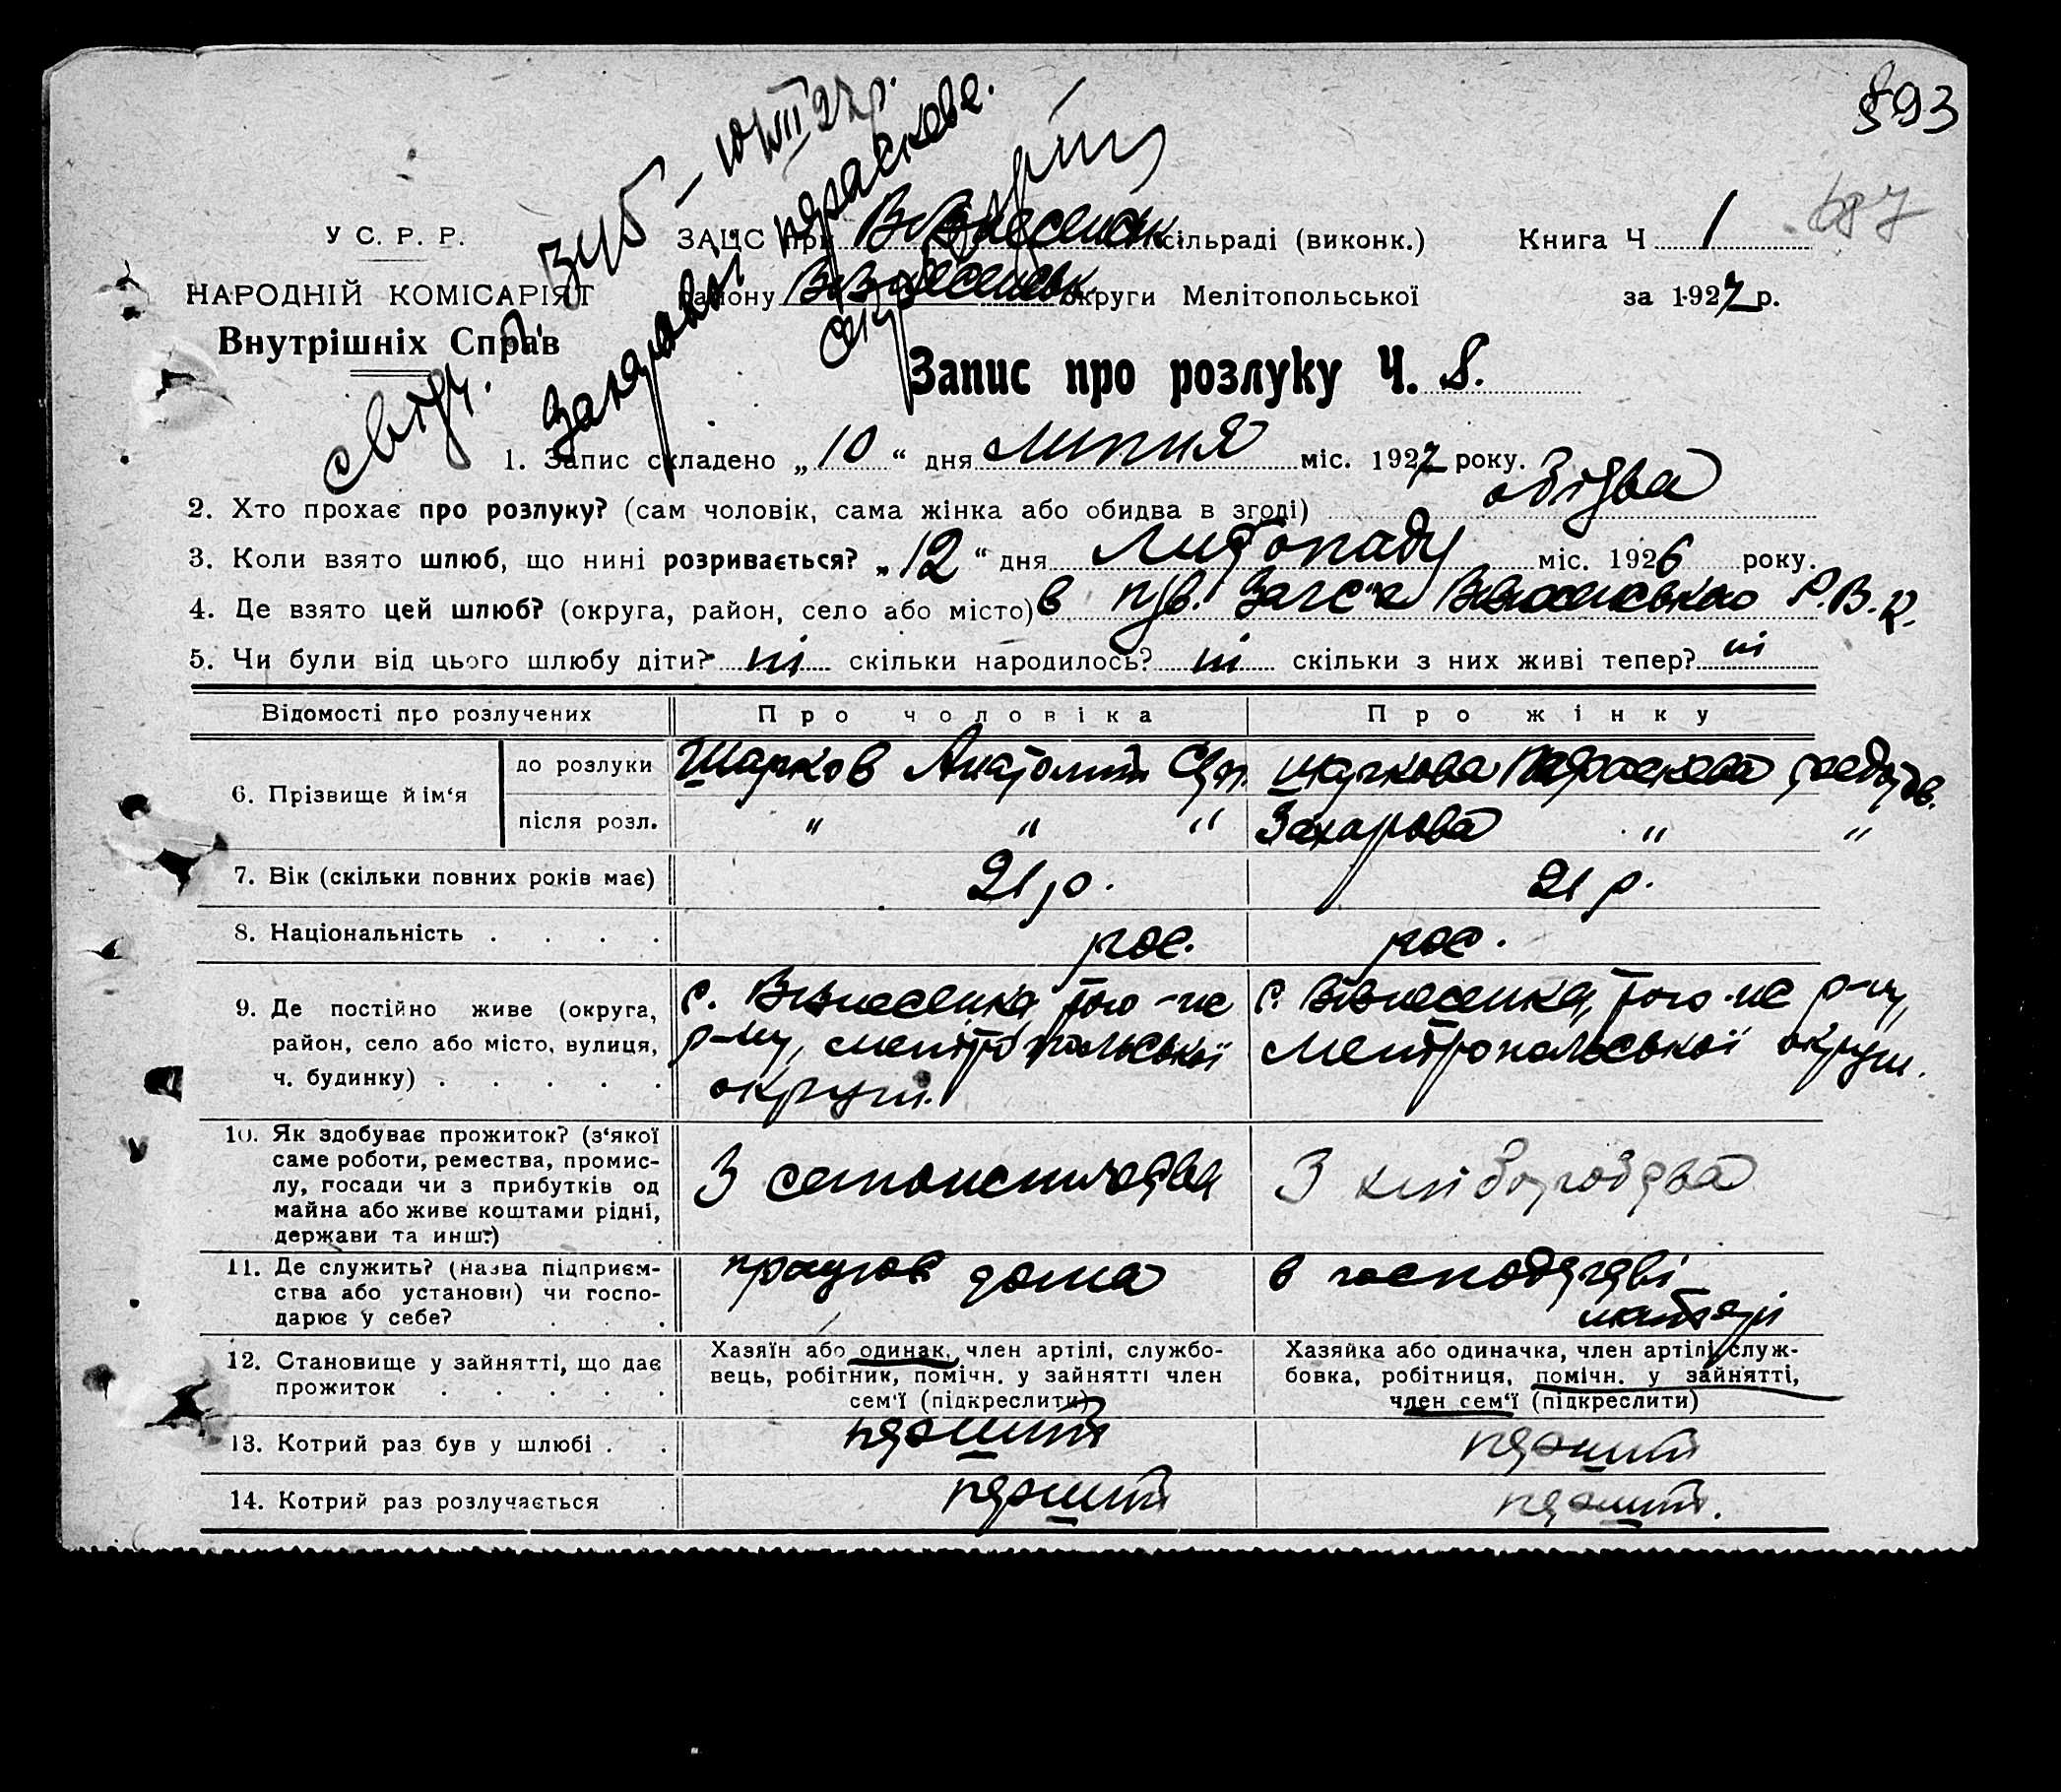 893
687
У С. Р. Р.
НАРОДНІЙ КОМІСАРІЯТ
Внутрішніх Справ
ЗАЦС при Вознесенськ. сільраді (виконк.)
району Вознесенськ. округи Мелітопольської
Книга Ч 1
за 1927 р.
Запис про розлуку Ч. 8.
1. Запис складено „10“ дня липня міс. 1927 року.
2. Хто прохає про розлуку? (сам чоловік, сама жінка або обидва в згоді) обідва
3. Коли взято шлюб, що нині розривається? „12“ дня Листопаду міс. 1926 року.
4. Де взято цей шлюб? (округа, район, село або місто) в Р.В.К.
5. Чи були від цього шлюбу діти? ні скільки народилось? ні скільки з них живі тепер? ні
Відомості про розлучених Про чоловіка Про жінку
6. Прізвище й ім‘я
до розлуки Шарков Анатолій Параскева
після розл. " " " Захарова " "
7. Вік (скільки повних років має) 21 р. 21 р.
8. Національність . . . . рос. рос.
9. Де постійно живе (округа, район, село або місто, вулиця, ч. будинку) . . . . .
с. Вознесенка, того-же р-ну, мелітопольської округи.
с. Вознесенка, того-же р-ну, мелітопольської округи.
10. Як здобуває прожиток? (з‘якої
саме роботи, ремества, промис-
лу, посади чи з прибутків од
майна або живе коштами рідні,
держави та инш.)
З З
11. Де служить? (назва підприєм-
ства або установи) чи госпо-
дарює у себе? . . .
працював дома
в господарстві
матері
12. Становище у зайнятті, що дає
прожиток . . . . .
Хазяїн або одинак, член артілі, службо-
вець, робітник, помічн. у зайнятті член
сем‘ї (підкреслити)
Хазяйка або одиначка, член артілі, служ-
бовка, робітниця, помічн. у зайнятті,
член сем‘ї (підкреслити)
13. Котрий раз був у шлюбі . . перший перший
14. Котрий раз розлучається . перший перший.